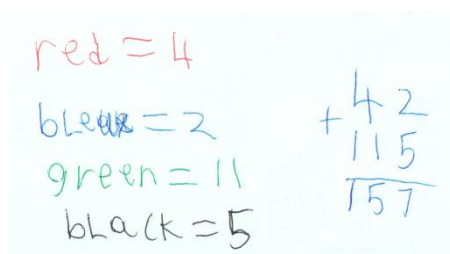 red = 4
bleus = 2
green = 11
black = 5
42
+ 115
157